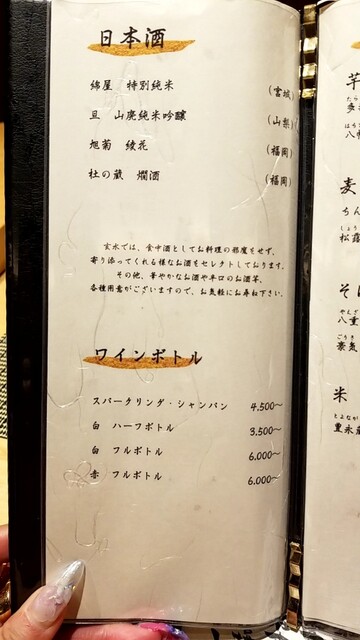 日本酒
綿屋 特別純米 (宮城)
旦 山廃純米吟醸 (山梨)
旭菊 綾花 (福岡)
杜の蔵 燗酒 (福岡)
玄水では、食中酒としてお料理の邪魔をせず、
寄り添ってくれる様なお酒をセレクトしております。
その他、華やかなお酒や辛口のお酒等、
各種用意がございますので、お気軽にお尋ね下さい。
ワインボトル
スパークリング・シャンパン 4.500〜
白 ハーフボトル 3.500〜
白 フルボトル 6.000〜
赤 フルボトル 6.000〜
芋
麦
米